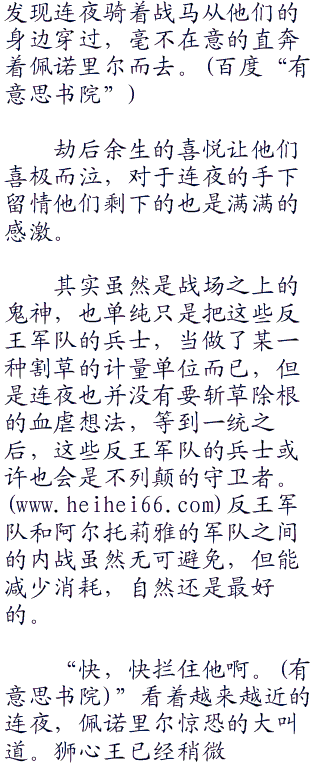 发现连夜骑着战马从他们的
身边穿过，毫不在意的直奔
着佩诺里尔而去。(百度“有
意思书院”)
劫后余生的喜悦让他们
喜极而泣，对于连夜的手下
留情他们剩下的也是满满的
感激。
其实虽然是战场之上的
鬼神，也单纯只是把这些反
王军队的兵士，当做了某一
种割草的计量单位而已，但
是连夜也并没有要斩草除根
的血虐想法，等到一统之
后，这些反王军队的兵士或
许也会是不列颠的守卫者。
(www.heihei66.com)反王军
队和阿尔托莉雅的军队之间
的内战虽然无可避免，但能
减少消耗，自然还是最好
的。
“快，快拦住他啊。(有
意思书院)”看着越来越近的
连夜，佩诺里尔惊恐的大叫
道。狮心王已经稍微